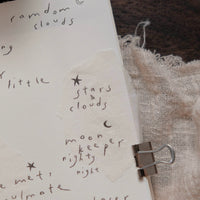 random
clouds
ng
r little
stars
&
clouds
moon
keeper
nighty
night
e met,
oulmate